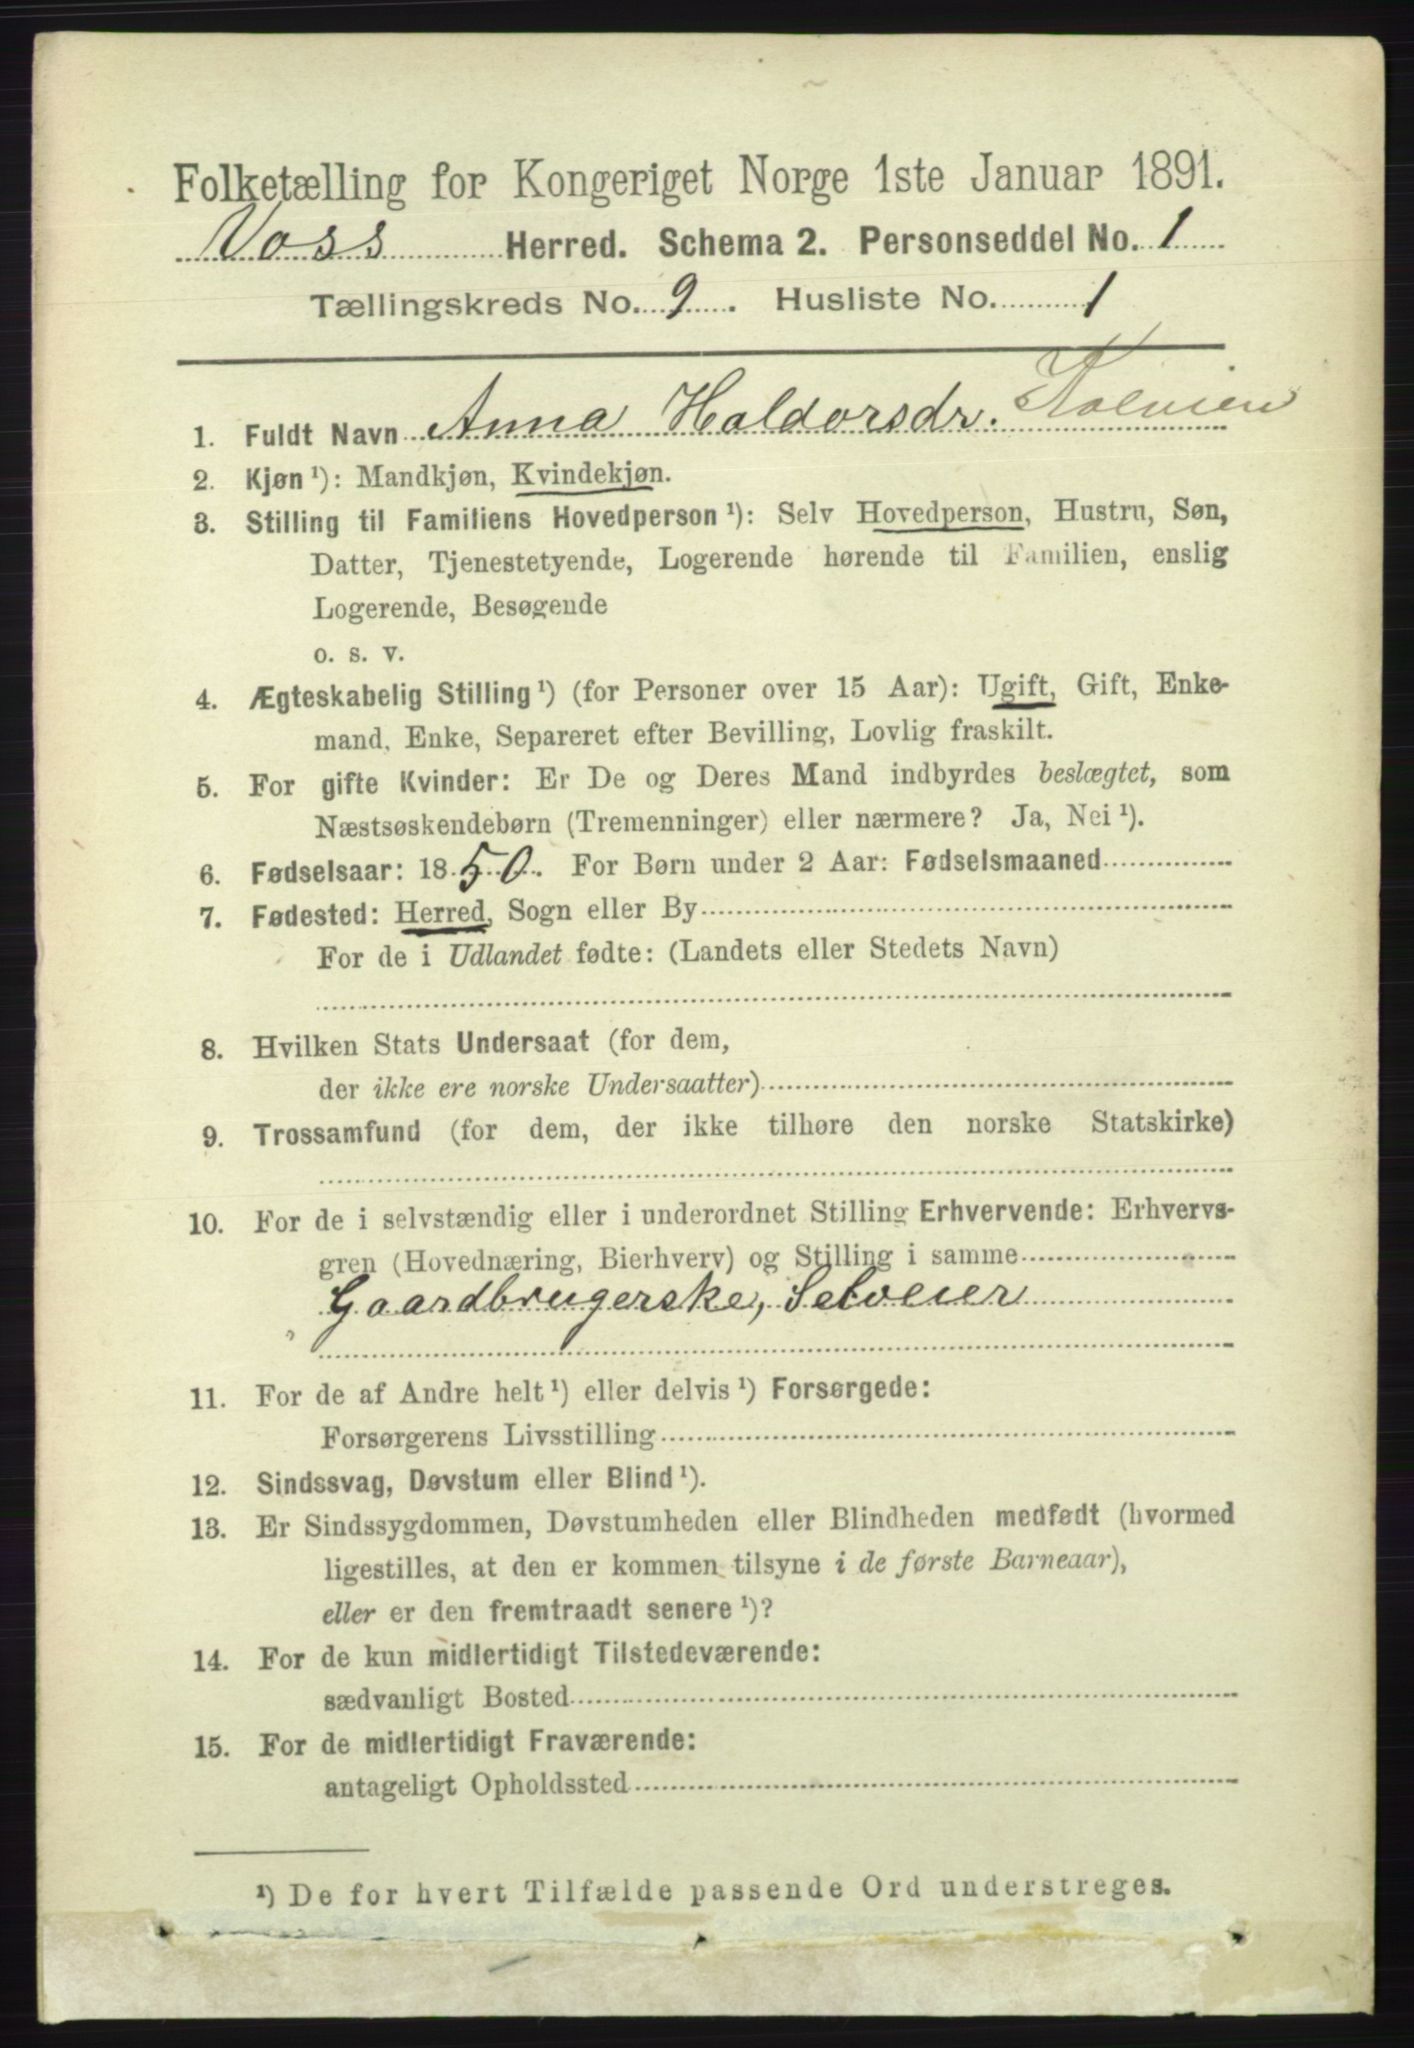 Folketælling for Kongeriget Norge 1ste Januar 1891.
Voss Herred. Schema 2. Personseddel No. 1
Tællingskreds No. 9. Husliste No. 1
1. Fuldt Navn Anna Haldorsdr.
2. Kjøn ¹): Mandkjøn, Kvindekjøn.
3. Stilling til Familiens Hovedperson ¹): Selv Hovedperson, Hustru, Søn,
Datter, Tjenestetyende, Logerende hørende til Familien, enslig
Logerende, Besøgende
o. s. v.
4. Ægteskabelig Stilling ¹) (for Personer over 15 Aar): Ugift, Gift, Enke-
mand, Enke, Separeret efter Bevilling, Lovlig fraskilt.
5. For gifte Kvinder: Er De og Deres Mand indbyrdes beslægtet, som
Næstsøskendebørn (Tremenninger) eller nærmere? Ja, Nei ¹).
6. Fødselsaar: 1850. For Børn under 2 Aar: Fødselsmaaned
7. Fødested: Herred, Sogn eller By
For de i Udlandet fødte: (Landets eller Stedets Navn)
8. Hvilken Stats Undersaat (for dem,
der ikke ere norske Undersaatter)
9. Trossamfund (for dem, der ikke tilhøre den norske Statskirke)
10. For de i selvstændig eller i underordnet Stilling Erhvervende: Erhvervs-
gren (Hovednæring, Bierhverv) og Stilling i samme
Gaardbrugerske, Selveier
11. For de af Andre helt ¹) eller delvis ¹) Forsørgede:
Forsørgerens Livsstilling
12. Sindssvag, Døvstum eller Blind ¹).
13. Er Sindssygdommen, Døvstumheden eller Blindheden medfødt (hvormed
ligestilles, at den er kommen tilsyne i de første Barneaar),
eller er den fremtraadt senere ¹)?
14. For de kun midlertidigt Tilstedeværende:
sædvanligt Bosted
15. For de midlertidigt Fraværende:
antageligt Opholdssted
¹) De for hvert Tilfælde passende Ord understreges.